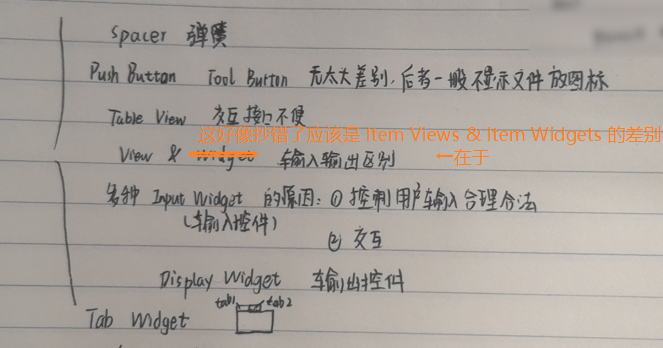 Spacer 弹簧
Push Button Tool Button 无太大差别，后者一般不显示文件 放图标
Table View 交互接口不便
这好像抄错了应该是 Item Views & Item Widgets 的差别
View & Widget 输入输出区别 ←在于
多种 Input Widget 的原因：① 控制用户输入合理合法
(输入控件)
② 交互
Display Widget 输出控件
tab1 tab2
Tab Widget